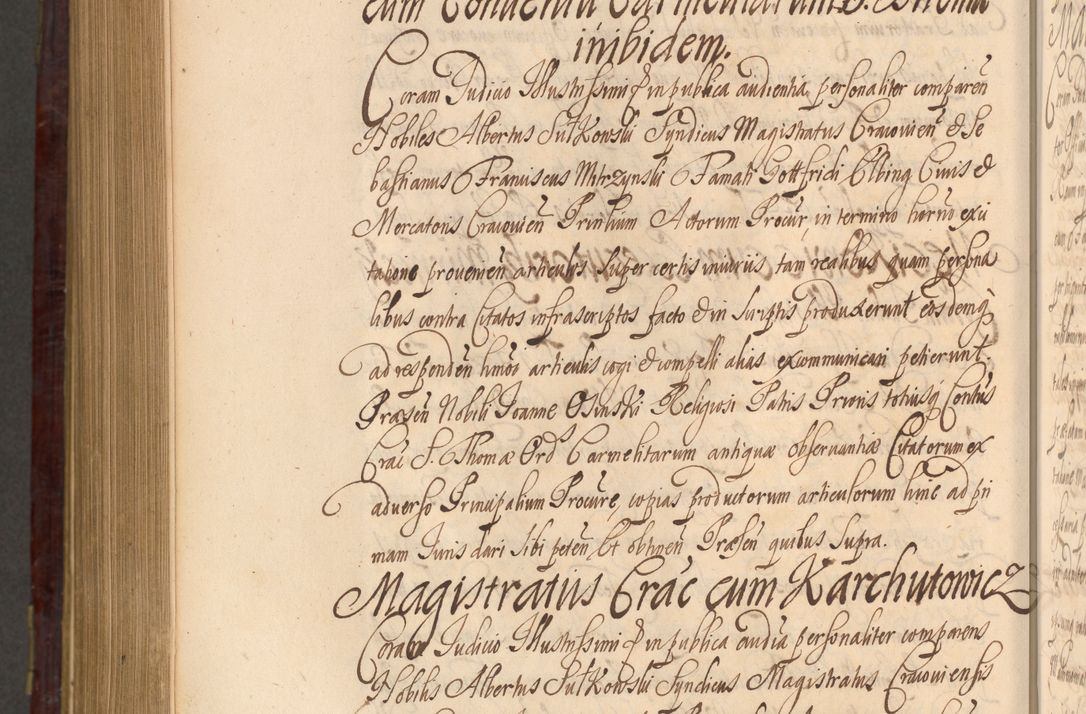 cum Conventu Carmelitarum S. Thomæ
inibidem.
Coram Judicio Illustrissimi & in publica audientia personaliter comparen̄
Nobiles Albertus Sutkowski Syndicus Magistratus Cracovien̄ & Se
bastianus Franciscus Mitrzynski Famati Gottfridi Elbing Civis &
Mercatoris Cracovien̄ Prinlium Actorum Procur, in termino horno ex ci
tatione provenien̄ articulos super certis iniuriis, tam realibus quam persona
libus contra Citatos infrascriptos facto & in scriptis produxerunt eosdemq̀
ad responden̄ hmōi articulis cogi & compelli alias excommunicari petierunt.
Præsen̄ Nobili Joanne Osinski Religiosi Patris Prioris totiusq́ Contūs
Crac̄ S. Thomæ Ords Carmelitarum antiquæ observantiæ Citatorum ex
adverso Principalium Procure, copias productorum articulorum hinc ad pri
mam Juris dari sibi peten̄ Et obtinen̄ Præsen̄ quibus supra.
Magistratus Crac̄ cum Karchutowicz
Coram Judicio Illustrissimi & in publica audīa personaliter comparens
Nobilis Albertus Sutkowski Syndicus Magistratus Cracoviensis